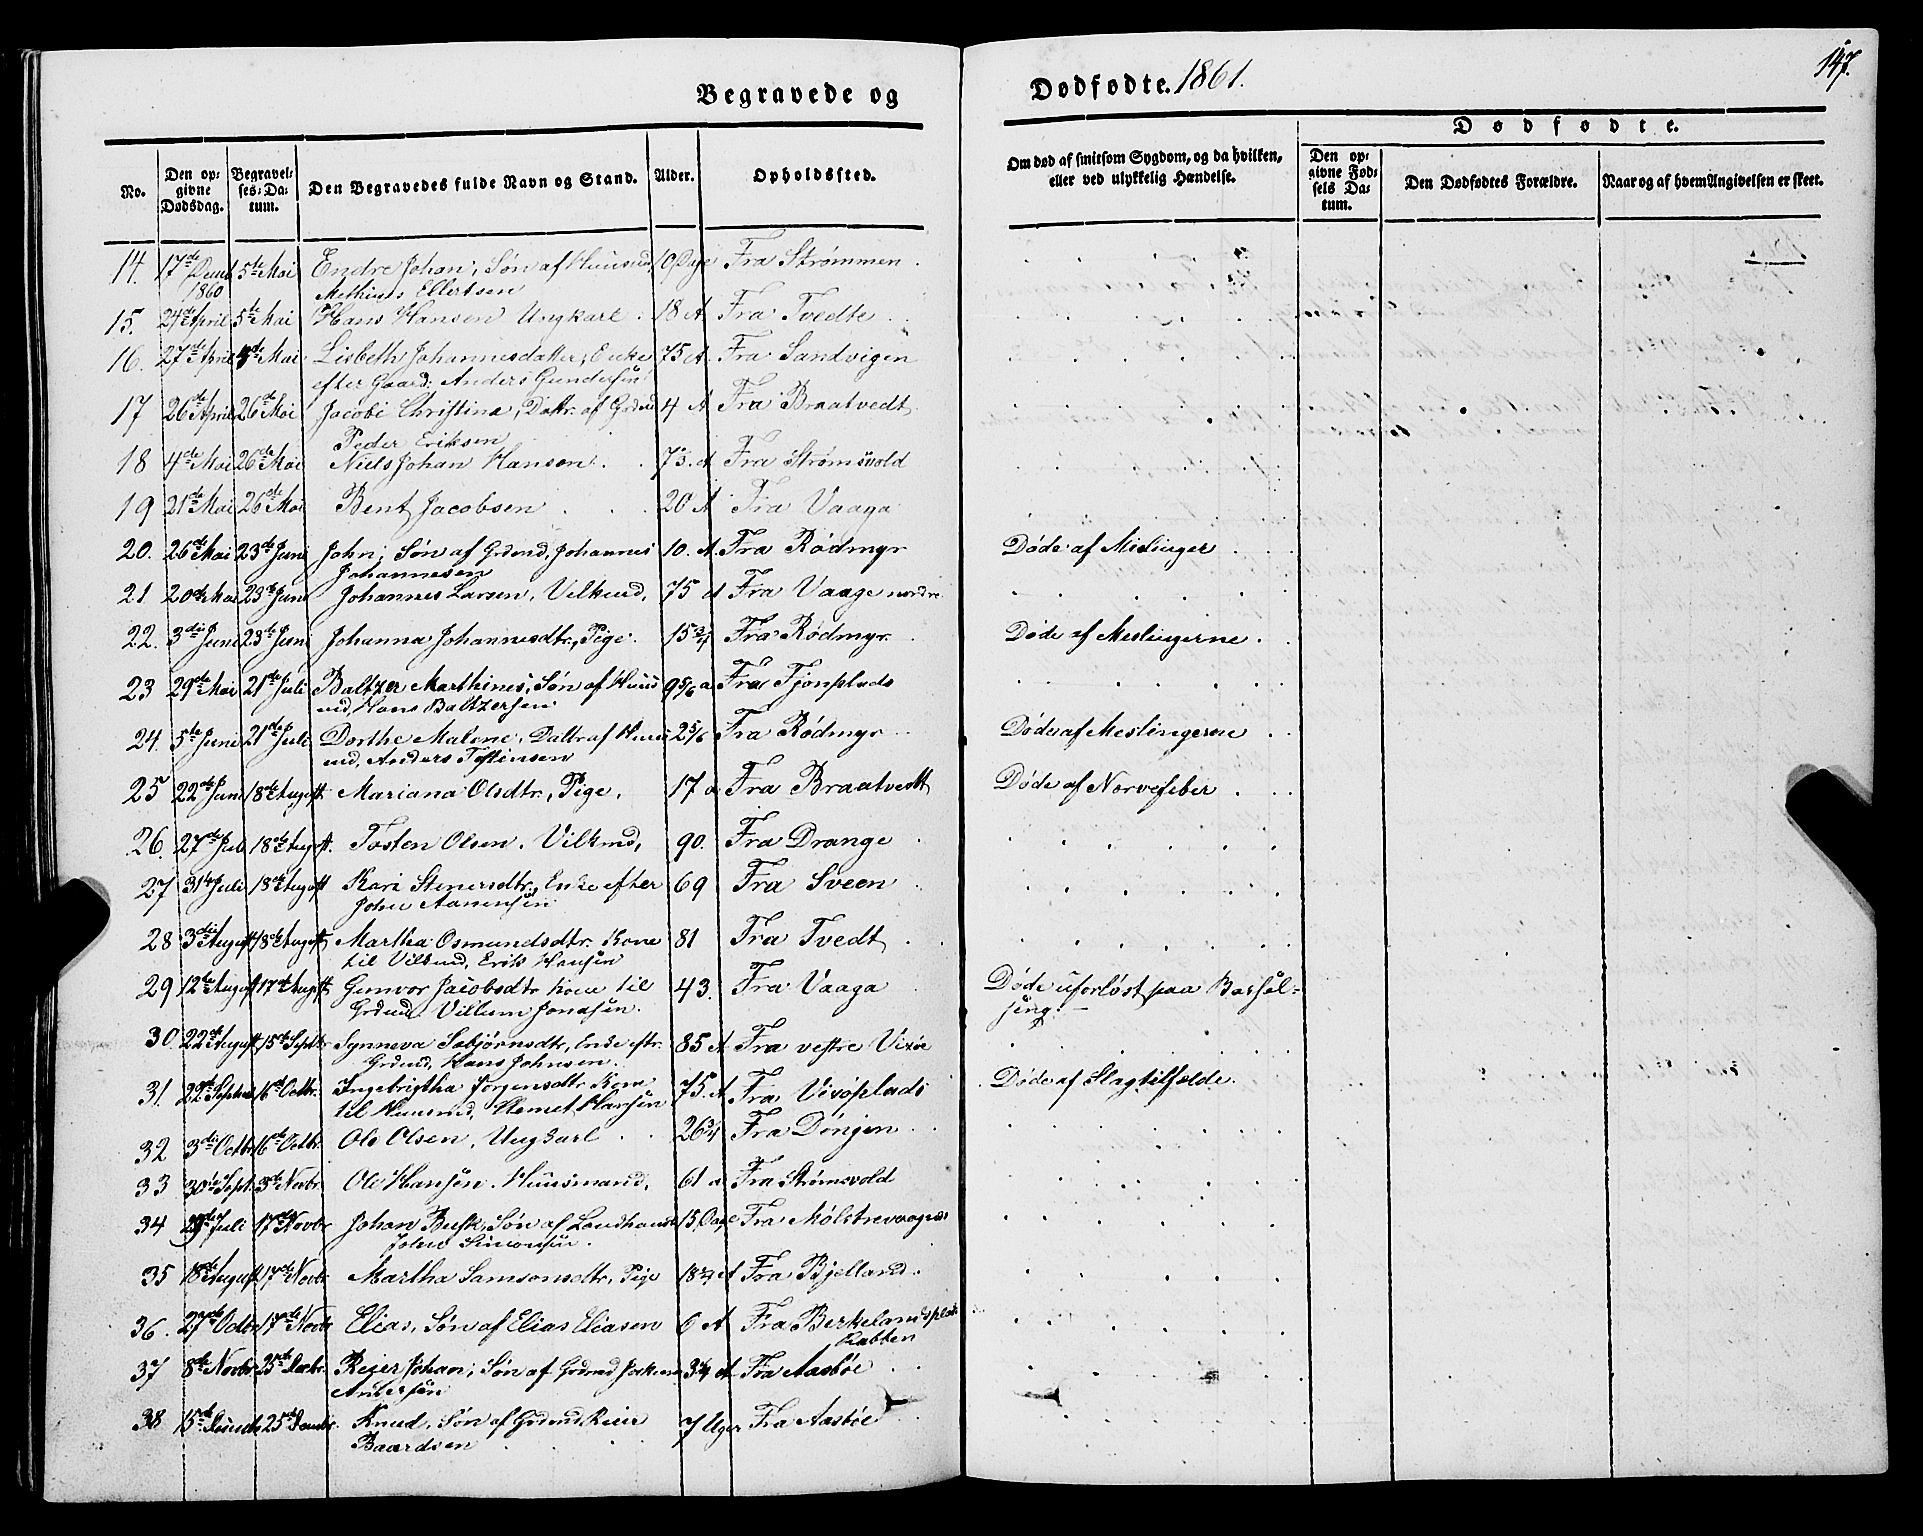 147.
Begravede og Dødfødte. 1861.
No.
Den opgivne Dødsdag.
Begravelses-Datum.
Den Begravedes fulde Navn og Stand.
Alder.
Opholdssted.
Om død af smitsom Sygdom, og da hvilken, eller ved ulykkelig Hændelse.
Dødfødte.
Den opgivne Fødsels Datum.
Den Dødfødtes Forældre.
Naar og af hvem Angivelsen er skeet.
14. 17de 1860 5te Mai Endre Johan, Søn af Huusmd 10 Dage Fra Strømmen
Mathias Ellertsen
15. 24de April 5te Mai Hans Hansen Ungkarl 18 A Fra Tvedte
16. 27de April 5te Mai Lisbeth Johannesdatter, Enke 75 A Fra Sandvigen
efter Gaard: Anders Gundersen
17 26de April 26de Mai Jacobe Christina, Dattr. af Grdmd 4 A Fra Braatvedt
Peder Eriksen
18 4de Mai 26de Mai Niels Johan Hansen 73. A Fra Strømsvold
19 21de Mai 26de Mai Bent Jacobsen 20 A Fra Vaaga
20. 26de Mai 23de Juni John, Søn af Grdmd, Johannes 10. A Fra Rødmyr Døde af Mislinger
Johannesen
21 20de Mai 23de Juni Johannes Larsen, Vilkmd, 75 A Fra Vaage nordre
22. 3die Juni 23de Juni Johanna Johannesdtr., Pige 15 3/4 Fra Rødmyr Døde af Meslingerne
23 29de Mai 21de Juli Baltzer Marthines, Søn af Huus 9 5/6 a Fra Tjonplads
md, Hans Baltzersen
24. 5te Juni 21de Juli Dorthe Malene, Dattr af Huus 2 5/6 Fra Rødmyr Døde af Meslingerne
md, Anders Tostensen
25 22de Juni 18de August Mariana Olsdtr., Pige, 17 a Fra Braatvedt Døde af Nervefeber
26. 27de 18de August. Tosten Olsen. Vilkmd, 90. Fra Drange
27 31te Juli 18de August Kari Stenersdtr., Enke efter 69 Fra Sveen
John Aanensen
28 3die August 18de August Martha Osmundsdtr. Kone 81 Fra Tvedt
til Vilkmd, Erik Hansen
29 12te August 17de August Gunvor Jacobsdtr Kone til 43. Fra Vaaga Døde uforløst paa Barsel-
Grdmd. Villum Jonasen. seng.
30 22de August 15de Septbr Synneva Sebjørnsdtr, Enke eftr. 85 A Fra vestre Vixøe
Grdmd, Hans Johnsen.
31. 22de Septbr 6te Octbr. Ingebrigtha Jørgensdtr Kone 75. A Fra Vixøplads Døde af Slagtilfælde.
til Huusmd, Hansen
32 3die Octbr 6te Octbr. Ole Olsen, Ungkarl 26 3/4 Fra Dønjen
33 30te Sept. 3de Novbr. Ole Hansen. Huusmand, 61 a Fra Strømsvold
34 29de Juli 17de Novbr Johan Busk, Søn af Landhandl 15 Dage Fra
John Simonsen.
35 18de August 17de Novbr Martha Samsonsdtr, Pige 18 3/4 A Fra Bjelland.
36. 27de Octbr 17de Novbr Elias, Søn af Elias Eliasen 6 A Fra Berkelandsplads
Rabben
37 8de Novbr 25de Decbr. Reier Johan, Søn af Grdmd 3 3/4 A Fra Aasbøe
Andersen
38 15de 25de Decbr. Knud, Søn af Grdmd Reier 7 Uger Fra Aasbøe
Baardsen